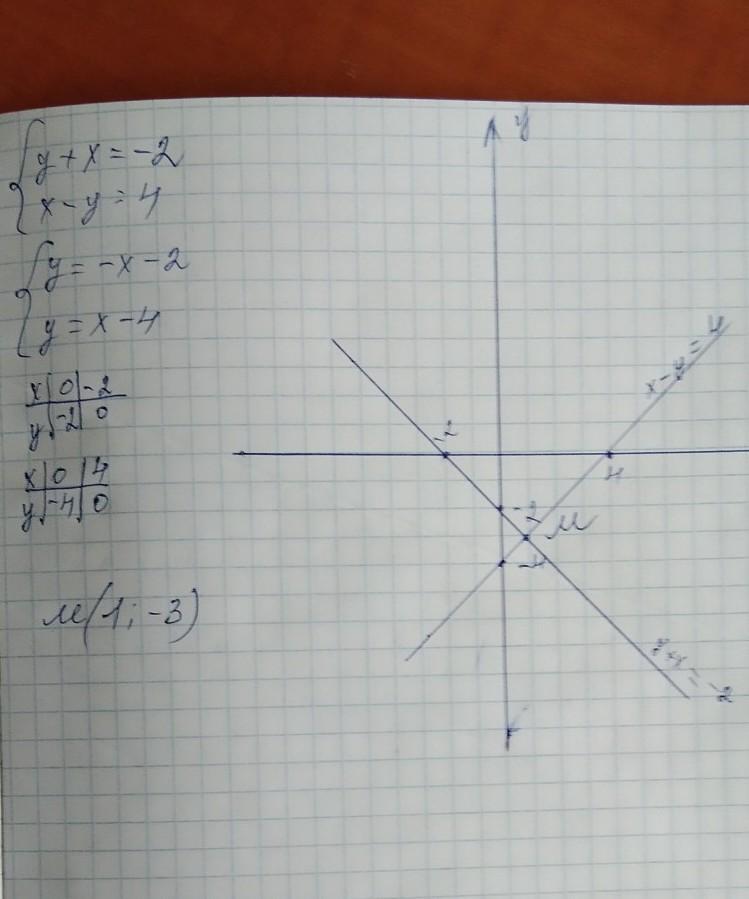 y + x = -2
x - y = 4
y = -x - 2
y = x - 4
x | 0 | -2
y | -2 | 0
x | 0 | 4
y | -4 | 0
M(1; -3)
y
x - y = 4
-2
4
-2
M
-4
y + x = -2